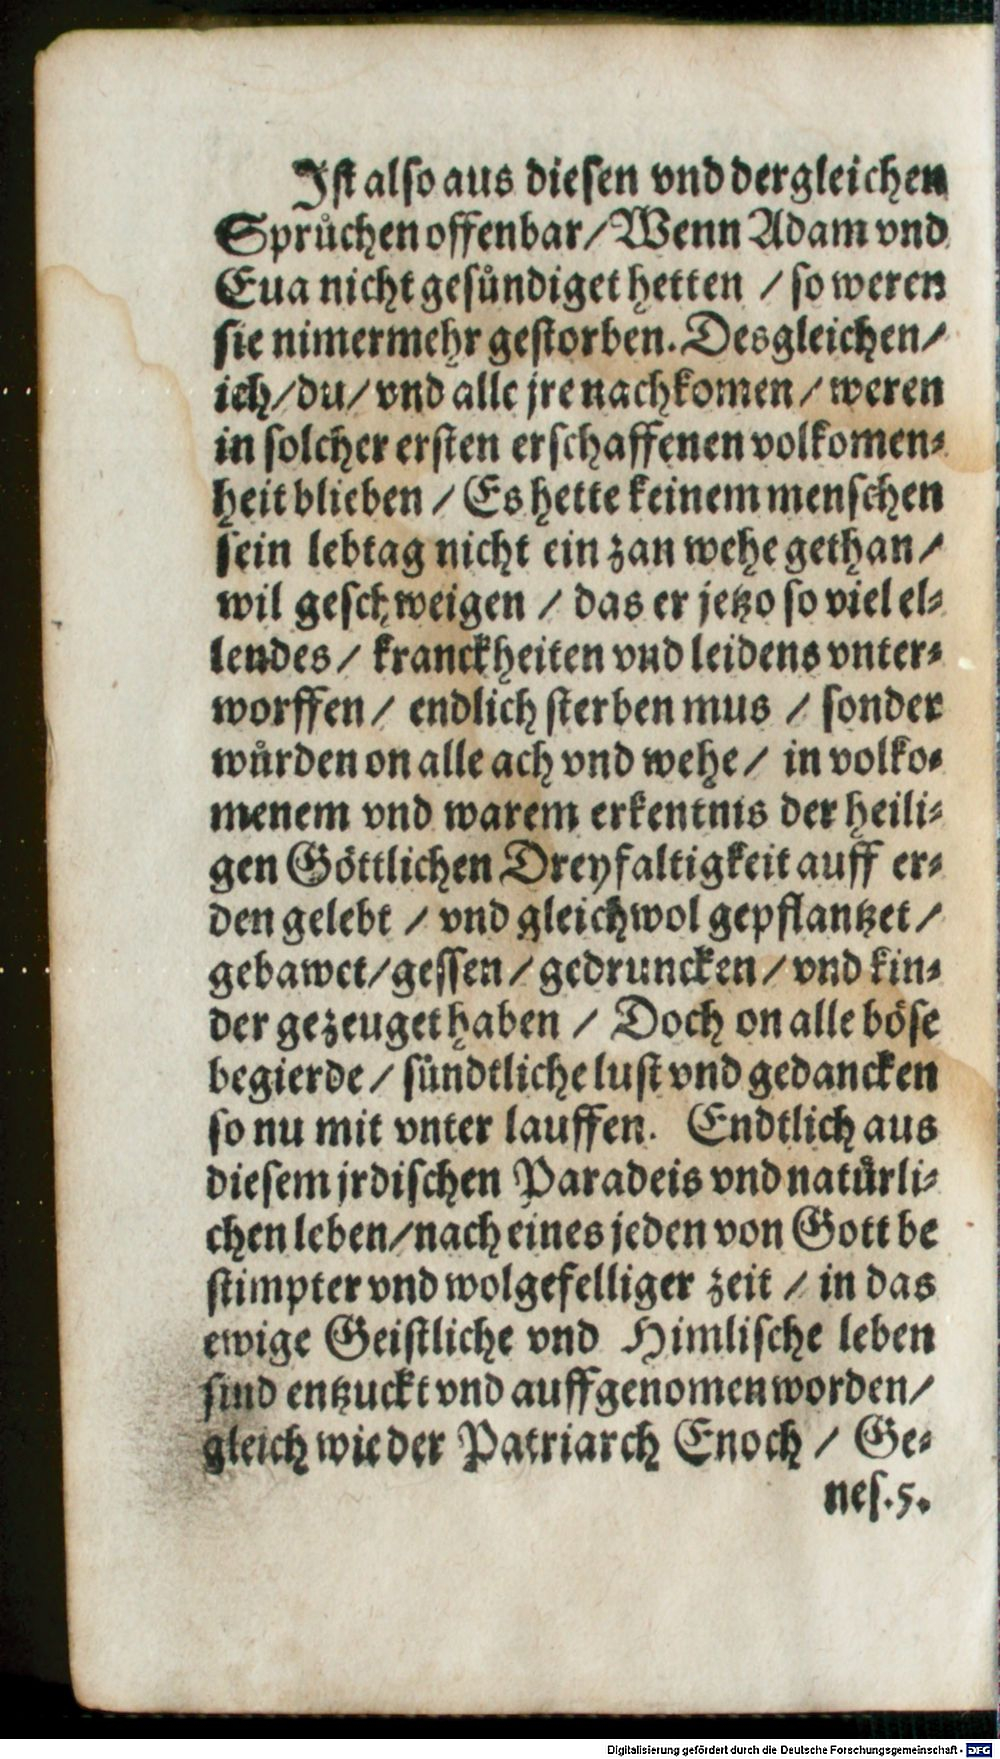 Ist also aus diesen vnd dergleichen
Sprůchen offenbar / Wenn Adam vnd
Eua nicht gesůndiget hetten / so weren
sie nimermehr gestorben. Desgleichen /
ich / du / vnd alle jre nachkomen / weren
in solcher ersten erschaffenen volkomen-
heit blieben / Es hette keinem menschen
sein lebtag nicht ein zan wehe gethan /
wil geschweigen / das er jetzo so viel el-
lendes / kranckheiten vnd leidens vnter-
worffen / endlich sterben mus / sonder
wůrden on alle ach vnd wehe / in volko-
menem vnd warem erkentnis der heili-
gen Göttlichen Dreyfaltigkeit auff er-
den gelebt / vnd gleichwol gepflantzet /
gebawet / gessen / gedruncken / vnd kin-
der gezeuget haben / Doch on alle böse
begierde / sündtliche lust vnd gedancken
so nu mit vnter lauffen. Endtlich aus
diesem jrdischen Paradeis vnd natůrli-
chen leben / nach eines jeden von Gott be
stimpter vnd wolgefelliger zeit / in das
ewige Geistliche vnd Himlische leben
sind entzuckt vnd auffgenomen worden /
gleich wie der Patriarch Enoch / Ge-
nes. 5.
Digitalisierung gefördert durch die Deutsche Forschungsgemeinschaft - DFG